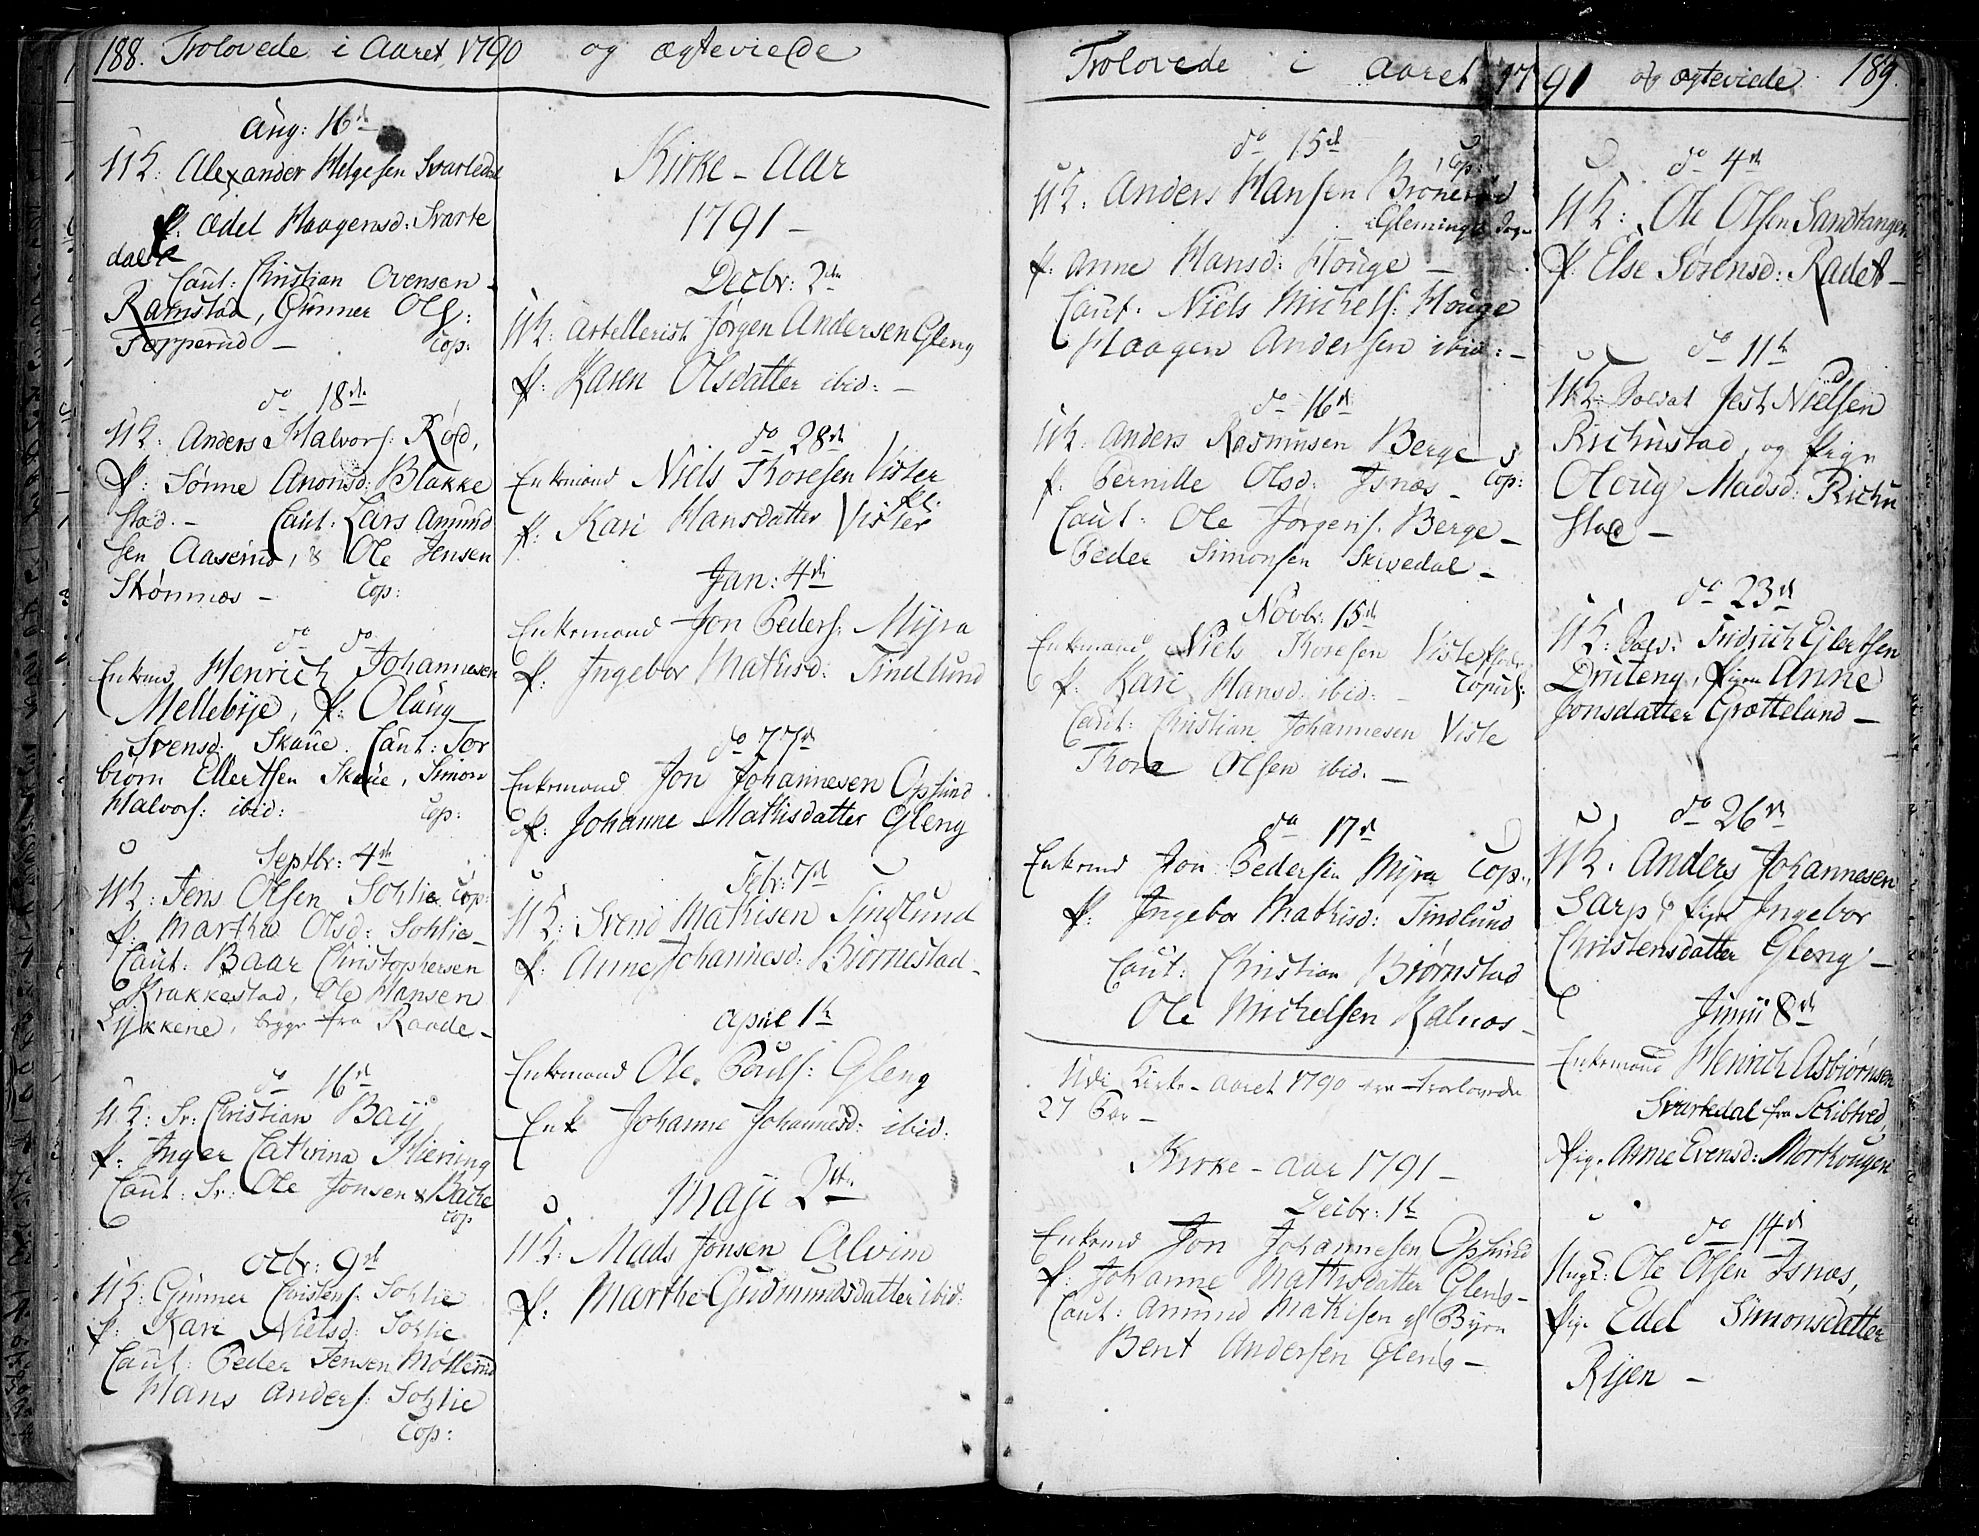 188. Trolovede i Aaret 1790 og ægteviede
Aug: 16de
UK: Alexander Helgesen Svartedal
P: Ædel Haagensd: Svarte
dalen
Caut: Christian Ovensen
Ramstad, Gunner Ols:
Topperud - Cop:
do 18de
UK: Anders Halvors: Rød,
P: Sønne Amonsd: Blakke
stad. - Caut: Lars Amund
sen Aaserud, & Ole Jensen
Strømnes - Cop:
do do
Enkmd Henrich Johannesen
Mellebye, P: Olaug
Svensd: Skaue. Caut: Tor
biørn Ellertsen Skaue, Simon
Halvors: ibid: Cop:
Septbr: 4de
UK: Jens Olsen Sohlie Cop:
P: Marthe Olsd: Sohlie-
Caut: Baar Christophersen
Krakkestad, Ole Hansen
Lykkene, begge fra Raade-
do 16de
UK: Sr: Christian Baÿ,
P: Inger Cathrina Hiering
Caut: Sr: Ole Jonsen & Bache
Cop
Octbr: 9de
UK: Gunner Christens: Sohlie
P: Kari Nielsd: Sohlie
Caut: Peder Jensen Møllerud
Hans Anders: Sohlie
Cop:
Kirke-Aar
1791-
Decbr: 2de
UK: Artellerist Jørgen Andersen Gleng
P: Karen Olsdatter ibid: -
do 28de
Enkemand Niels Thoresen Vister
P: Kari Hansdatter Vister
Jan: 4de
Enkemand Jon Peders: Myra
P: Ingebor Mathisd: Tindlund
do 77de
Enkemand Jon Johannesen Opsund
P: Johanne Mathisdatter Gleng
Febr: 7de
UK: Svend Mathisen Tindlund
P: Anne Johannesd: Biørnestad-
April 1te
Enkemand Ole Pouls: Gleng
Enke Johanne Johannesd: ibid:
Maji 2den
UK: Mads Jonsen Alvim
P: Marthe Gudmundsdatter ibid:
Trolovede i Aaret 1791 og ægteviede 189.
do 15de
Cop:
UK: Anders Hansen Brønerød
i Gleminge Sogn
P: Anne Hansd: Houge -
Caut: Niels Michels: Houge
Haagen Andersen ibid: -
do 16de
UK: Anders Rasmusen Berge
P: Pernille Olsd: Isnæs - Cop:
Caut: Ole Jørgens: Berge-
Peder Simonsen Skivedal-
Novbr: 15de
Enkemand Niels Thoresen Viste
P: Kari Hansd: ibid: - Copul:
Caut: Christian Johannesen Viste
Thore Olsen ibid. -
do 17de
Enkemd Jon Pedersen Myra Cop:
P: Ingebor Mathisd: Tindlund
Caut: Christian Biørnstad
Ole Michelsen Kalnæs-
Udi Kirke-Aaret 1790 ere Trolovede
27 Par -
Kirke-Aar 1791-
Decbr: 1te
Enkemd Jon Johannesen Opsund
P: Johanne Mathisdatter Gleng-
Caut: Amund Mathisen af Byen
Bent Andersen Gleng-
do 4de
UK: Ole Olsen Sandtangen
P: Else Sørensd: Radet-
do 11te
UK: Soldat Jest Nielsen
Richustad, og Pige
Oloug Madsd: Richu
stad -
do 23de
UK: Sold: Fridrich Ejlertsen
Druteng, Pigen Anne
Jonsdatter Grætteland -
do 26de
UK: Anders Johannesen
Sarp, Pige Ingebor
Christensdatter Gleng -
Junii 8de
Enkemand Henrich Asbiørnsen
Svartedal fra Schibtved,
Pige Anne Evensd: Morkougen
do 14de
Ungk: Ole Olsen Isnæs,
Pige Edel Simonsdatter
Rijen -